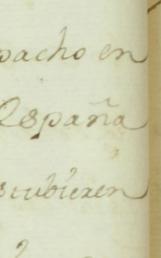 pacho en
España
scubieren